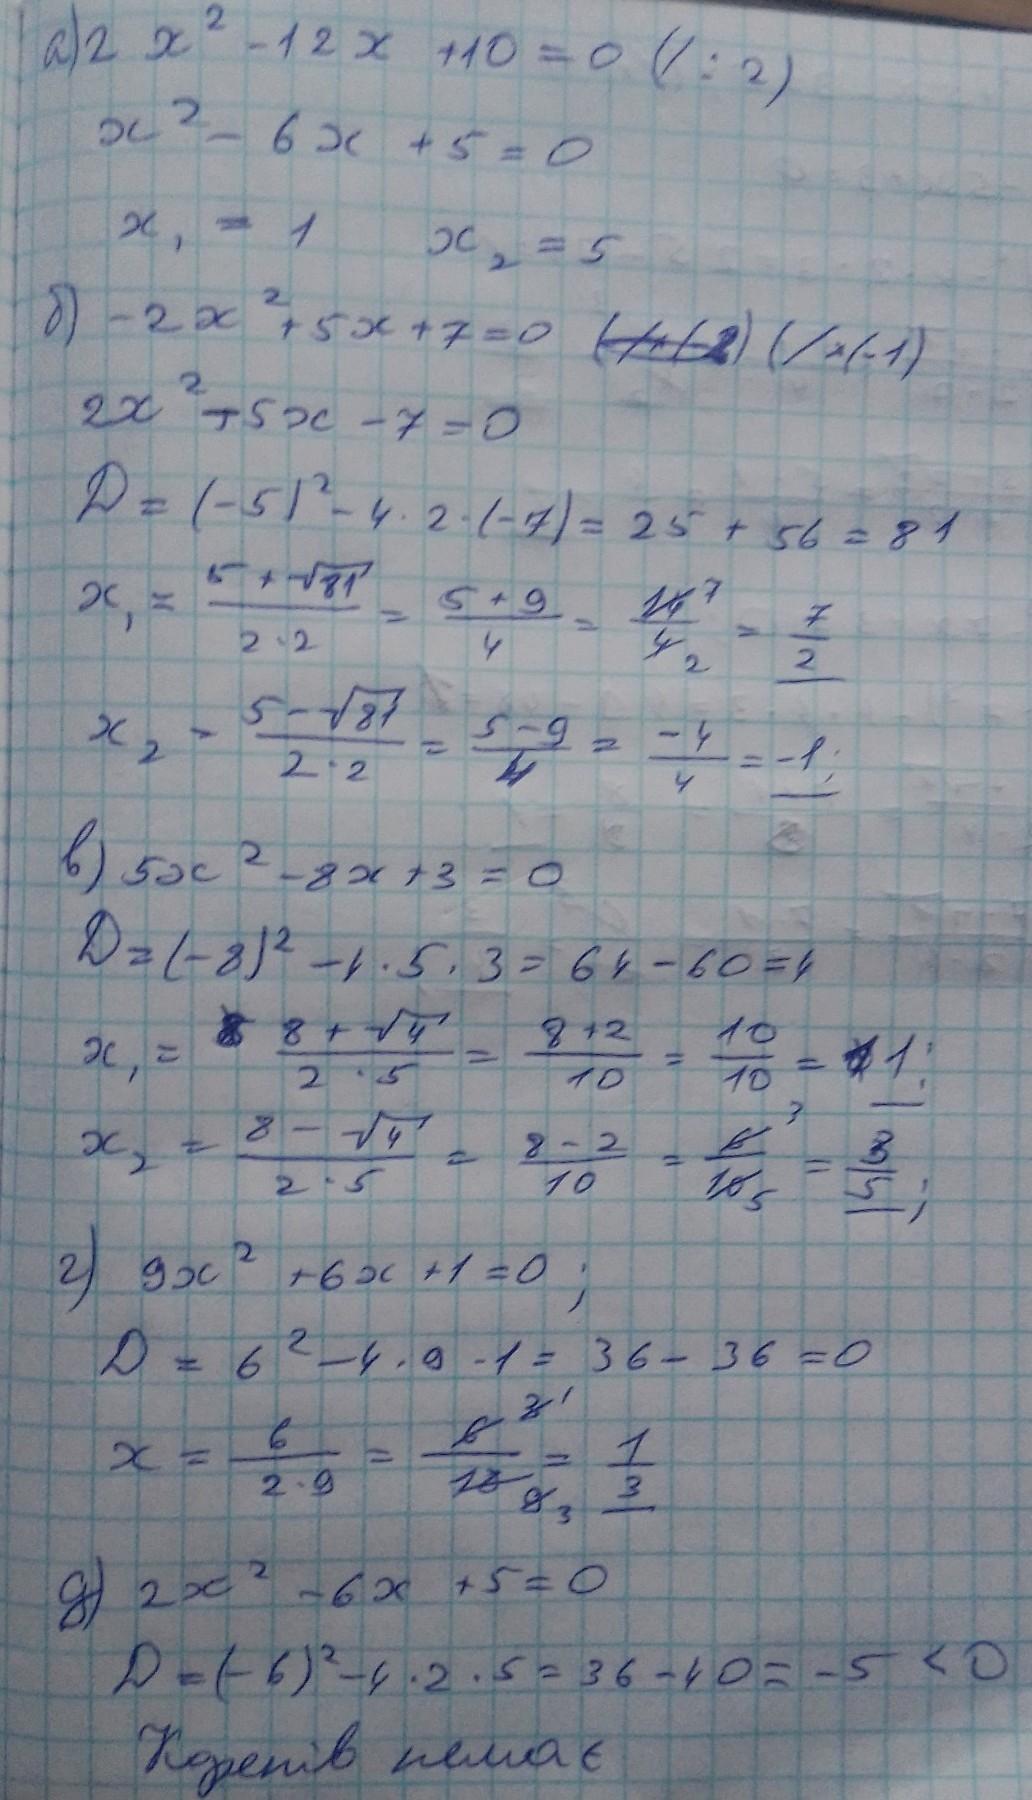 а) 2x² - 12x + 10 = 0 (/ : 2)
x² - 6x + 5 = 0
x₁ = 1 x₂ = 5
б) -2x² + 5x + 7 = 0 (/×(-1)
2x² - 5x - 7 = 0
D = (-5)² - 4 · 2 · (-7) = 25 + 56 = 81
x₁ = (5 + √81)/(2 · 2) = (5 + 9)/4 = 14/4 = 7/2
x₂ = (5 - √81)/(2 · 2) = (5 - 9)/4 = -4/4 = -1;
в) 5x² - 8x + 3 = 0
D = (-8)² - 4 · 5 · 3 = 64 - 60 = 4
x₁ = (8 + √4)/(2 · 5) = (8 + 2)/10 = 10/10 = 1;
x₂ = (8 - √4)/(2 · 5) = (8 - 2)/10 = 6/10 = 3/5;
г) 9x² + 6x + 1 = 0;
D = 6² - 4 · 9 · 1 = 36 - 36 = 0
x = 6/(2 · 9) = 6/18 = 1/3
д) 2x² - 6x + 5 = 0
D = (-6)² - 4 · 2 · 5 = 36 - 40 = -5 < 0
Коренів немає